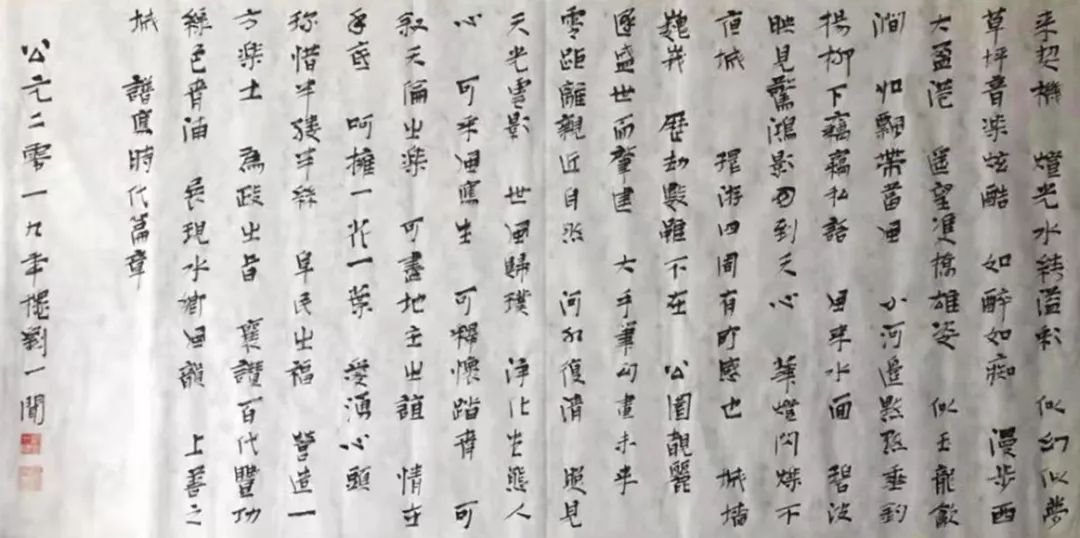 来契機 燈光水结溢彩 似幻似夢
草坪音樂炫酷 如醉如痴 漫步西
大盈港 遥望橋雄姿 似玉龍飲
澗 如飄带當風 小河邊點點垂釣
楊柳下竊竊私語 風来水面 碧波
映見驚鴻影 到天心 華燈閃爍不
夜城 環游四周有所感也 城墙
巍峩 歷劫毁雖不在 公園靚麗
逢盛世而肇建 大手筆勾畫未来
零距離親近自然 河水復清 照見
天光雲影 世風歸璞 淨化生態人
心 可乘風寫生 可釋懷踏青 可
叙天倫之樂 可盡地主之誼 情在
手底 呵擁一花一葉 愛湧心頭
珍惜半縷半絲 阜民之福 營造一
方樂土 為政之旨 襄讚百代豐功
綠色青浦 展現水鄉風韻 上善之
城 譜寫時代篇章
公元二零一九年 劉一聞